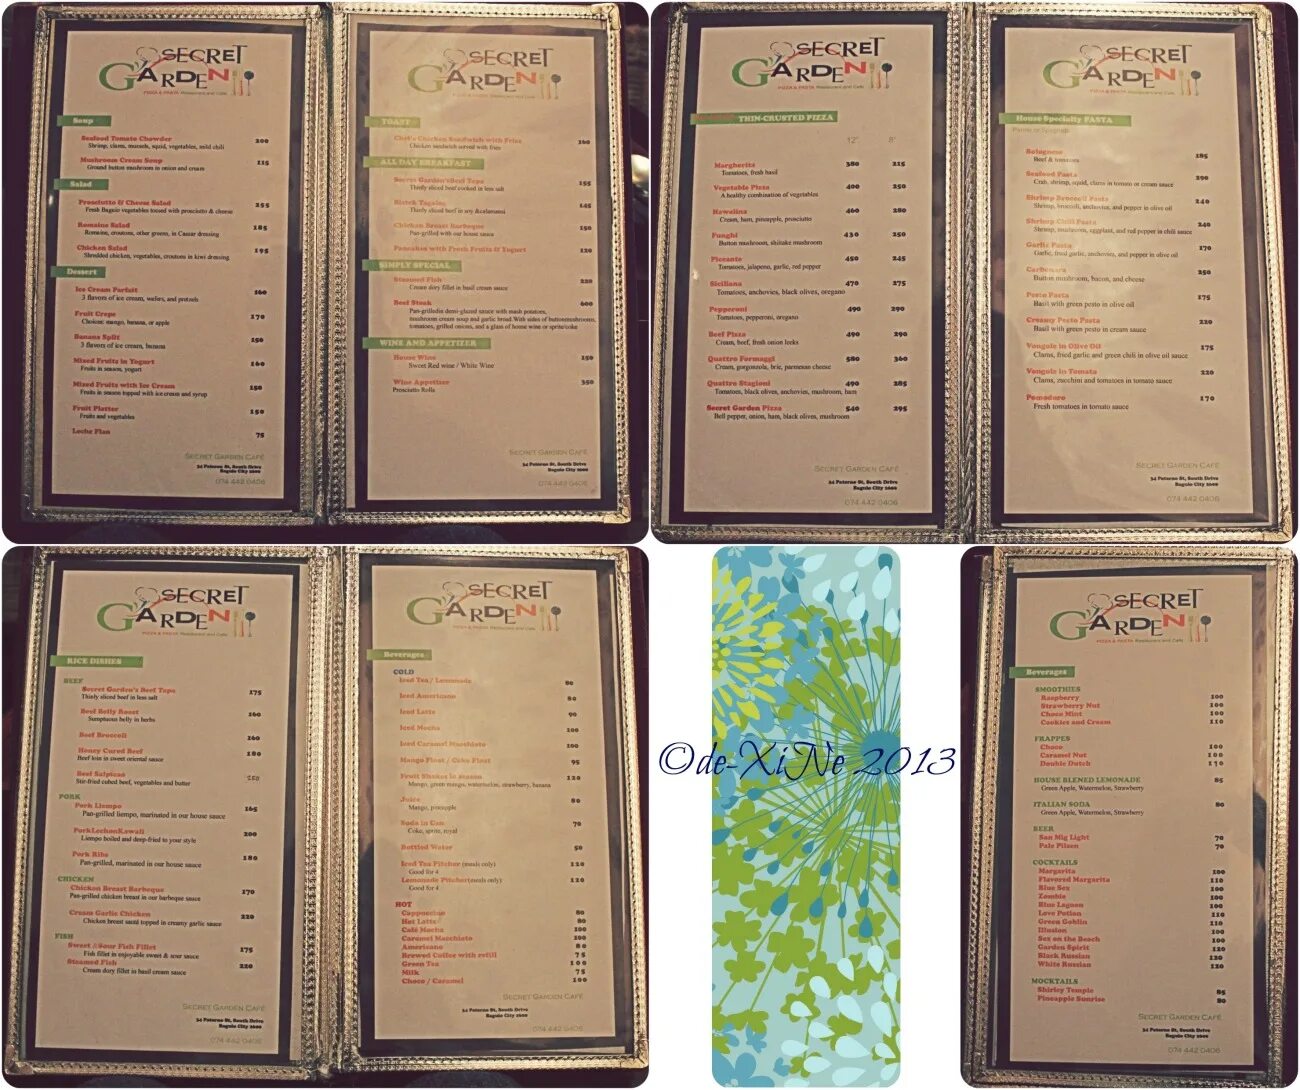 SECRET
GARDEN
PIZZA & PASTA Restaurant and Cafe
Soup
Seafood Tomato Chowder 200
Shrimp, clams, mussels, squid, vegetables, mild chili
Mushroom Cream Soup 115
Ground button mushroom in onion and cream
Salad
Prosciutto & Cheese Salad 255
Fresh Baguio vegetables tossed with prosciutto & cheese
Romaine Salad 185
Romaine, croutons, other greens, in Caesar dressing
Chicken Salad 195
Shredded chicken, vegetables, croutons in kiwi dressing
Dessert
Ice Cream Parfait 160
3 flavors of ice cream, wafers, and pretzels
Fruit Crepe 170
Choices: mango, banana, or apple
Banana Split 150
3 flavors of ice cream, banana
Mixed Fruits in Yogurt 160
Fruits in season, yogurt
Mixed Fruits with Ice Cream 150
Fruits in season topped with ice cream and syrup
Fruit Platter 150
Fruits and vegetables
Leche Flan 75
SECRET GARDEN CAFÉ
34 Paterno St, South Drive
Baguio City 2600
074 442 0406
SECRET
GARDEN
PIZZA & PASTA Restaurant and Cafe
TOAST
Chef's Chicken Sandwich with Fries 160
Chicken sandwich served with fries
ALL DAY BREAKFAST
Secret Garden'sBeef Tapa 155
Thinly sliced beef cooked in less salt
Bistek Tagalog 145
Thinly sliced beef in soy &calamansi
Chicken Breast Barbeque 150
Pan-grilled with our house sauce
Pancakes with Fresh Fruits & Yogurt 120
SIMPLY SPECIAL
Steamed Fish 220
Cream dory fillet in basil cream sauce
Beef Steak 600
Pan-grilledin demi-glazed sauce with mash potatoes,
mushroom cream soup and garlic bread.With sides of buttonmushrooms,
tomatoes, grilled onions, and a glass of house wine or sprite/coke
WINE AND APPETIZER
House Wine 150
Sweet Red wine / White Wine
Wine Appetizer 350
Prosciutto Rolls
SECRET GARDEN CAFÉ
34 Paterno St, South Drive
Baguio City 2600
074 442 0406
SECRET
GARDEN
PIZZA & PASTA Restaurant and Cafe
THIN-CRUSTED PIZZA
12" 8"
Margherita 380 215
Tomatoes, fresh basil
Vegetable Pizza 400 250
A healthy combination of vegetables
Hawaiina 460 280
Cream, ham, pineapple, prosciutto
Funghi 430 250
Button mushroom, shiitake mushroom
Piccante 450 245
Tomatoes, jalapeno, garlic, red pepper
Siciliana 470 275
Tomatoes, anchovies, black olives, oregano
Pepperoni 490 290
Tomatoes, pepperoni, oregano
Beef Pizza 490 290
Cream, beef, fresh onion leeks
Quattro Formaggi 580 360
Cream, gorgonzola, brie, parmesan cheese
Quattro Stagioni 490 285
Tomatoes, black olives, anchovies, mushroom, ham
Secret Garden Pizza 540 295
Bell pepper, onion, ham, black olives, mushroom
SECRET GARDEN CAFÉ
34 Paterno St, South Drive
Baguio City 2600
074 442 0406
SECRET
GARDEN
PIZZA & PASTA Restaurant and Cafe
House Specialty PASTA
Penne or Spaghetti
Bolognese 185
Beef & tomatoes
Seafood Pasta 290
Crab, shrimp, squid, clams in tomato or cream sauce
Shrimp Broccoli Pasta 240
Shrimp, broccoli, anchovies, and pepper in olive oil
Shrimp Chili Pasta 240
Shrimp, mushroom, eggplant, and red pepper in chili sauce
Garlic Pasta 170
Garlic, fried garlic, anchovies, and pepper in olive oil
Carbonara 250
Button mushroom, bacon, and cheese
Pesto Pasta 175
Basil with green pesto in olive oil
Creamy Pesto Pasta 220
Basil with green pesto in cream sauce
Vongole in Olive Oil 175
Clams, fried garlic and green chili in olive oil sauce
Vongole in Tomato 220
Clams, zucchini and tomatoes in tomato sauce
Pomodoro 170
Fresh tomatoes in tomato sauce
SECRET GARDEN CAFÉ
34 Paterno St, South Drive
Baguio City 2600
074 442 0406
SECRET
GARDEN
PIZZA & PASTA Restaurant and Cafe
RICE DISHES
BEEF
Secret Garden's Beef Tapa 175
Thinly sliced beef in less salt
Beef Belly Roast 160
Sumptuous belly in herbs
Beef Broccoli 160
Honey Cured Beef 180
Beef loin in sweet oriental sauce
Beef Salpicao 250
Stir-fried cubed beef, vegetables and butter
PORK
Pork Liempo 165
Pan-grilled liempo, marinated in our house sauce
PorkLechonKawali 200
Liempo boiled and deep-fried to your style
Pork Ribs 180
Pan-grilled, marinated in our house sauce
CHICKEN
Chicken Breast Barbeque 170
Pan-grilled chicken breast in our barbeque sauce
Cream Garlic Chicken 220
Chicken breast sauté topped in creamy garlic sauce
FISH
Sweet &Sour Fish Fillet 175
Fish fillet in enjoyable sweet & sour sauce
Steamed Fish 220
Cream dory fillet in basil cream sauce
SECRET GARDEN CAFÉ
34 Paterno St, South Drive
Baguio City 2600
074 442 0406
SECRET
GARDEN
PIZZA & PASTA Restaurant and Cafe
Beverages
COLD
Iced Tea / Lemonade 60
Iced Americano 80
Iced Latte 90
Iced Mocha 100
Iced Caramel Macchiato 100
Mango Float / Coke Float 95
Fruit Shakes in season 120
Mango, green mango, watermelon, strawberry, banana
Juice 80
Mango, pineapple
Soda in Can 70
Coke, sprite, royal
Bottled Water 50
Iced Tea Pitcher (meals only) 120
Good for 4
Lemonade Pitcher(meals only) 120
Good for 4
HOT
Cappuccino 80
Hot Latte 80
Café Mocha 100
Caramel Macchiato 100
Americano 80
Brewed Coffee with refill 75
Green Tea 100
Milk 75
Choco / Caramel 100
SECRET GARDEN CAFÉ
34 Paterno St, South Drive
Baguio City 2600
074 442 0406
©de-XiNe 2013
SECRET
GARDEN
PIZZA & PASTA Restaurant and Cafe
Beverages
SMOOTHIES
Raspberry 100
Strawberry Nut 100
Choco Mint 100
Cookies and Cream 110
FRAPPES
Choco 100
Caramel Nut 100
Double Dutch 170
HOUSE BLENED LEMONADE 85
Green Apple, Watermelon, Strawberry
ITALIAN SODA 80
Green Apple, Watermelon, Strawberry
BEER
San Mig Light 70
Pale Pilsen 70
COCKTAILS
Margarita 100
Flavored Margarita 110
Blue Sex 100
Zombie 100
Blue Lagoon 100
Love Potion 110
Green Goblin 110
Illusion 100
Sex on the Beach 100
Garden Spirit 120
Black Russian 120
White Russian 120
MOCKTAILS
Shirley Temple 85
Pineapple Sunrise 80
SECRET GARDEN CAFÉ
34 Paterno St, South Drive
Baguio City 2600
074 442 0406